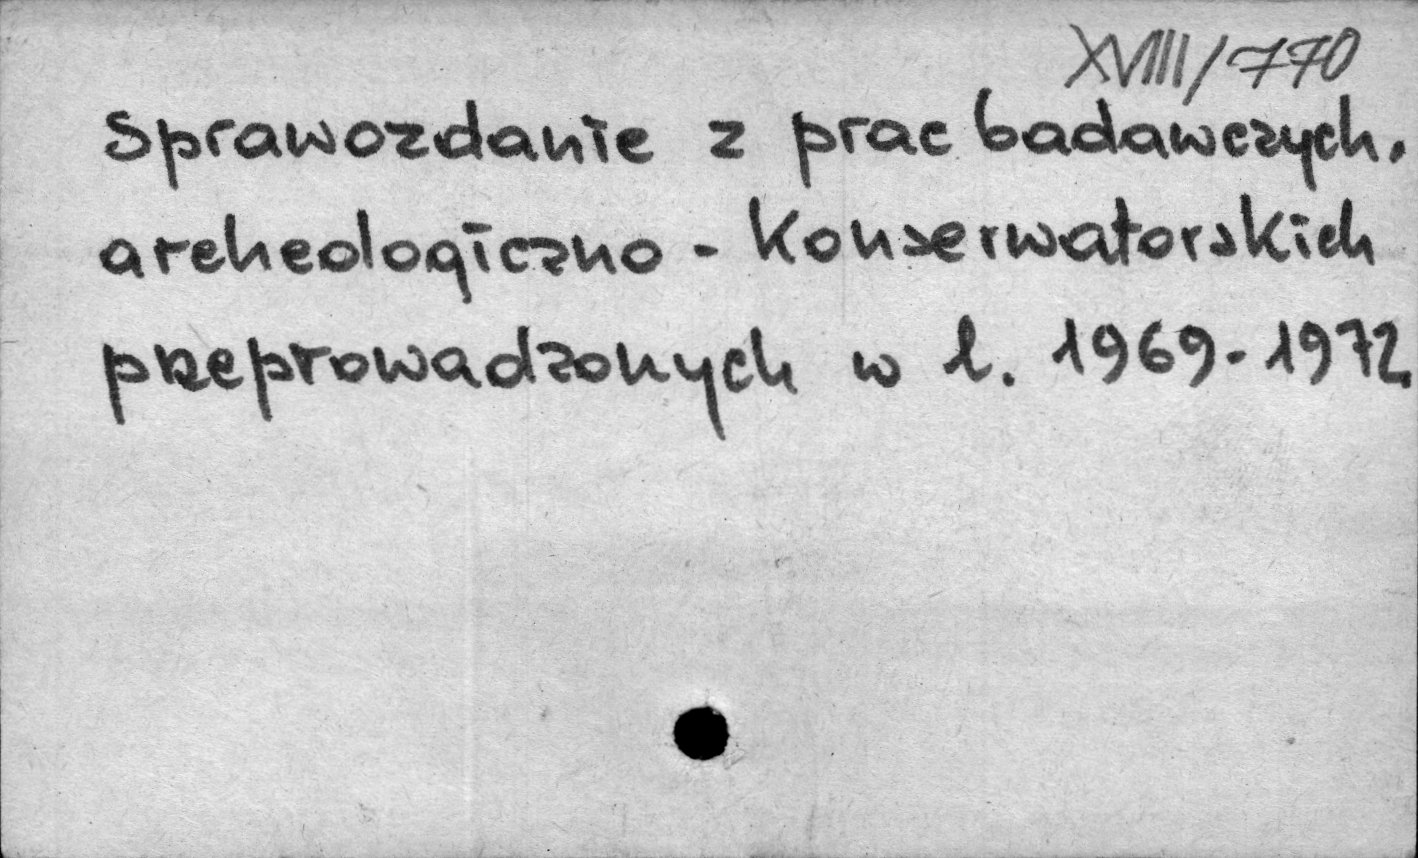 XVIII/770
Sprawozdanie z prac badawczych.
archeologiczno - konserwatorskich
przeprowadzonych w l. 1969-1972.